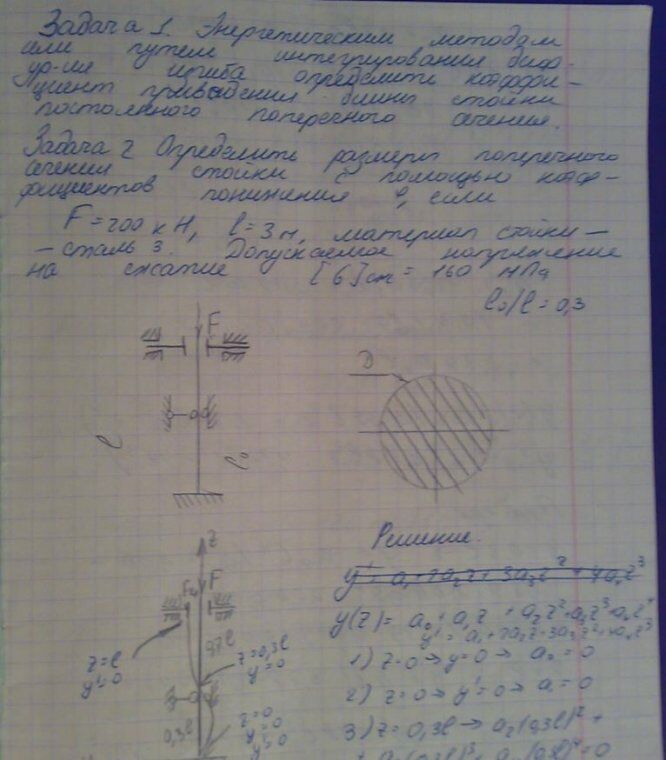 Задача 1. Энергетическим методом
или путем интегрирования диф.
ур-ия изгиба определить коэффи-
циент приведения длины стойки
постоянного поперечного сечения.
Задача 2 Определить размеры поперечного
сечения стойки с помощью коэф-
фициентов понижения φ, если
F = 200 кН, l = 3м, материал стойки –
– сталь 3. Допускаемое напряжение
на сжатие [б]сж = 160 МПа
l₀/l = 0,3
F
D
l
l₀
Решение.
z
F
y(z) = a₀ + a₁z + a₂z² + a₃z³ + a₄z⁴
y' = a₁ + 2a₂z + 3a₃z² + 4a₄z³
0,7l
z=l
y'=0
z=0,3l
y=0
1) z=0 → y=0 → a₀ = 0
2) z=0 → y'=0 → a₁ = 0
0,3l
z=0
y=0
y'=0
3) z = 0,3l → a₂(0,3l)² +
+ a₃(0,3l)³ + a₄(0,3l)⁴ = 0